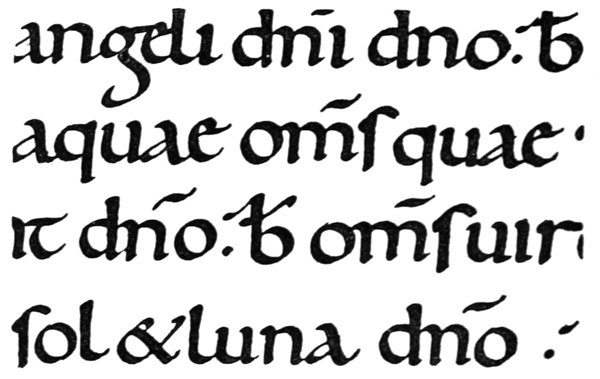 angeli dnī dno. ƀ
aquae om̃s quae ·
it dño. ƀ om̃s uir
sol & luna dnõ .·